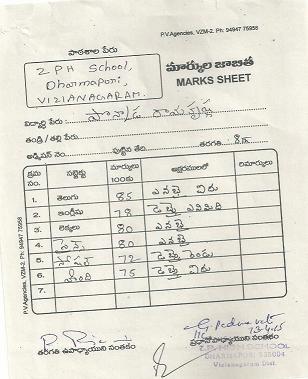 P.V.Agencies, VZM-2. Ph: 94947 75958
పాఠశాల పేరు
Z PH School,
Dharmapuri,
VIZIANAGARAM.
మార్కుల జాబితా
MARKS SHEET
విద్యార్థి పేరు: రామకృష్ణ
తండ్రి / తల్లి పేరు:
అడ్మిషన్ నం. పుట్టిన తేది. తరగతి. 8th
క్రమ నం. సబ్జెక్టు మార్కులు 100కు అక్షరములలో రిమార్కులు
1. తెలుగు 85 ఎనభై ఐదు
2. ఇంగ్లీషు 78 డెబ్బై ఎనిమిది
3. లెక్కలు 80 ఎనభై
4. సైన్సు 80 ఎనభై
5. సోషల్ 72 డెబ్బై రెండు
6. హింది 75 డెబ్బై ఐదు
7.
P.V.Agencies, VZM-2. Ph: 94947 75958
తరగతి ఉపాధ్యాయుని సంతకం
ప్రధానోపాధ్యాయుని సంతకం
13-4-15
Z.P.HIGH SCHOOL
DHARMAPURI 535004
Vizianagaram Dist.